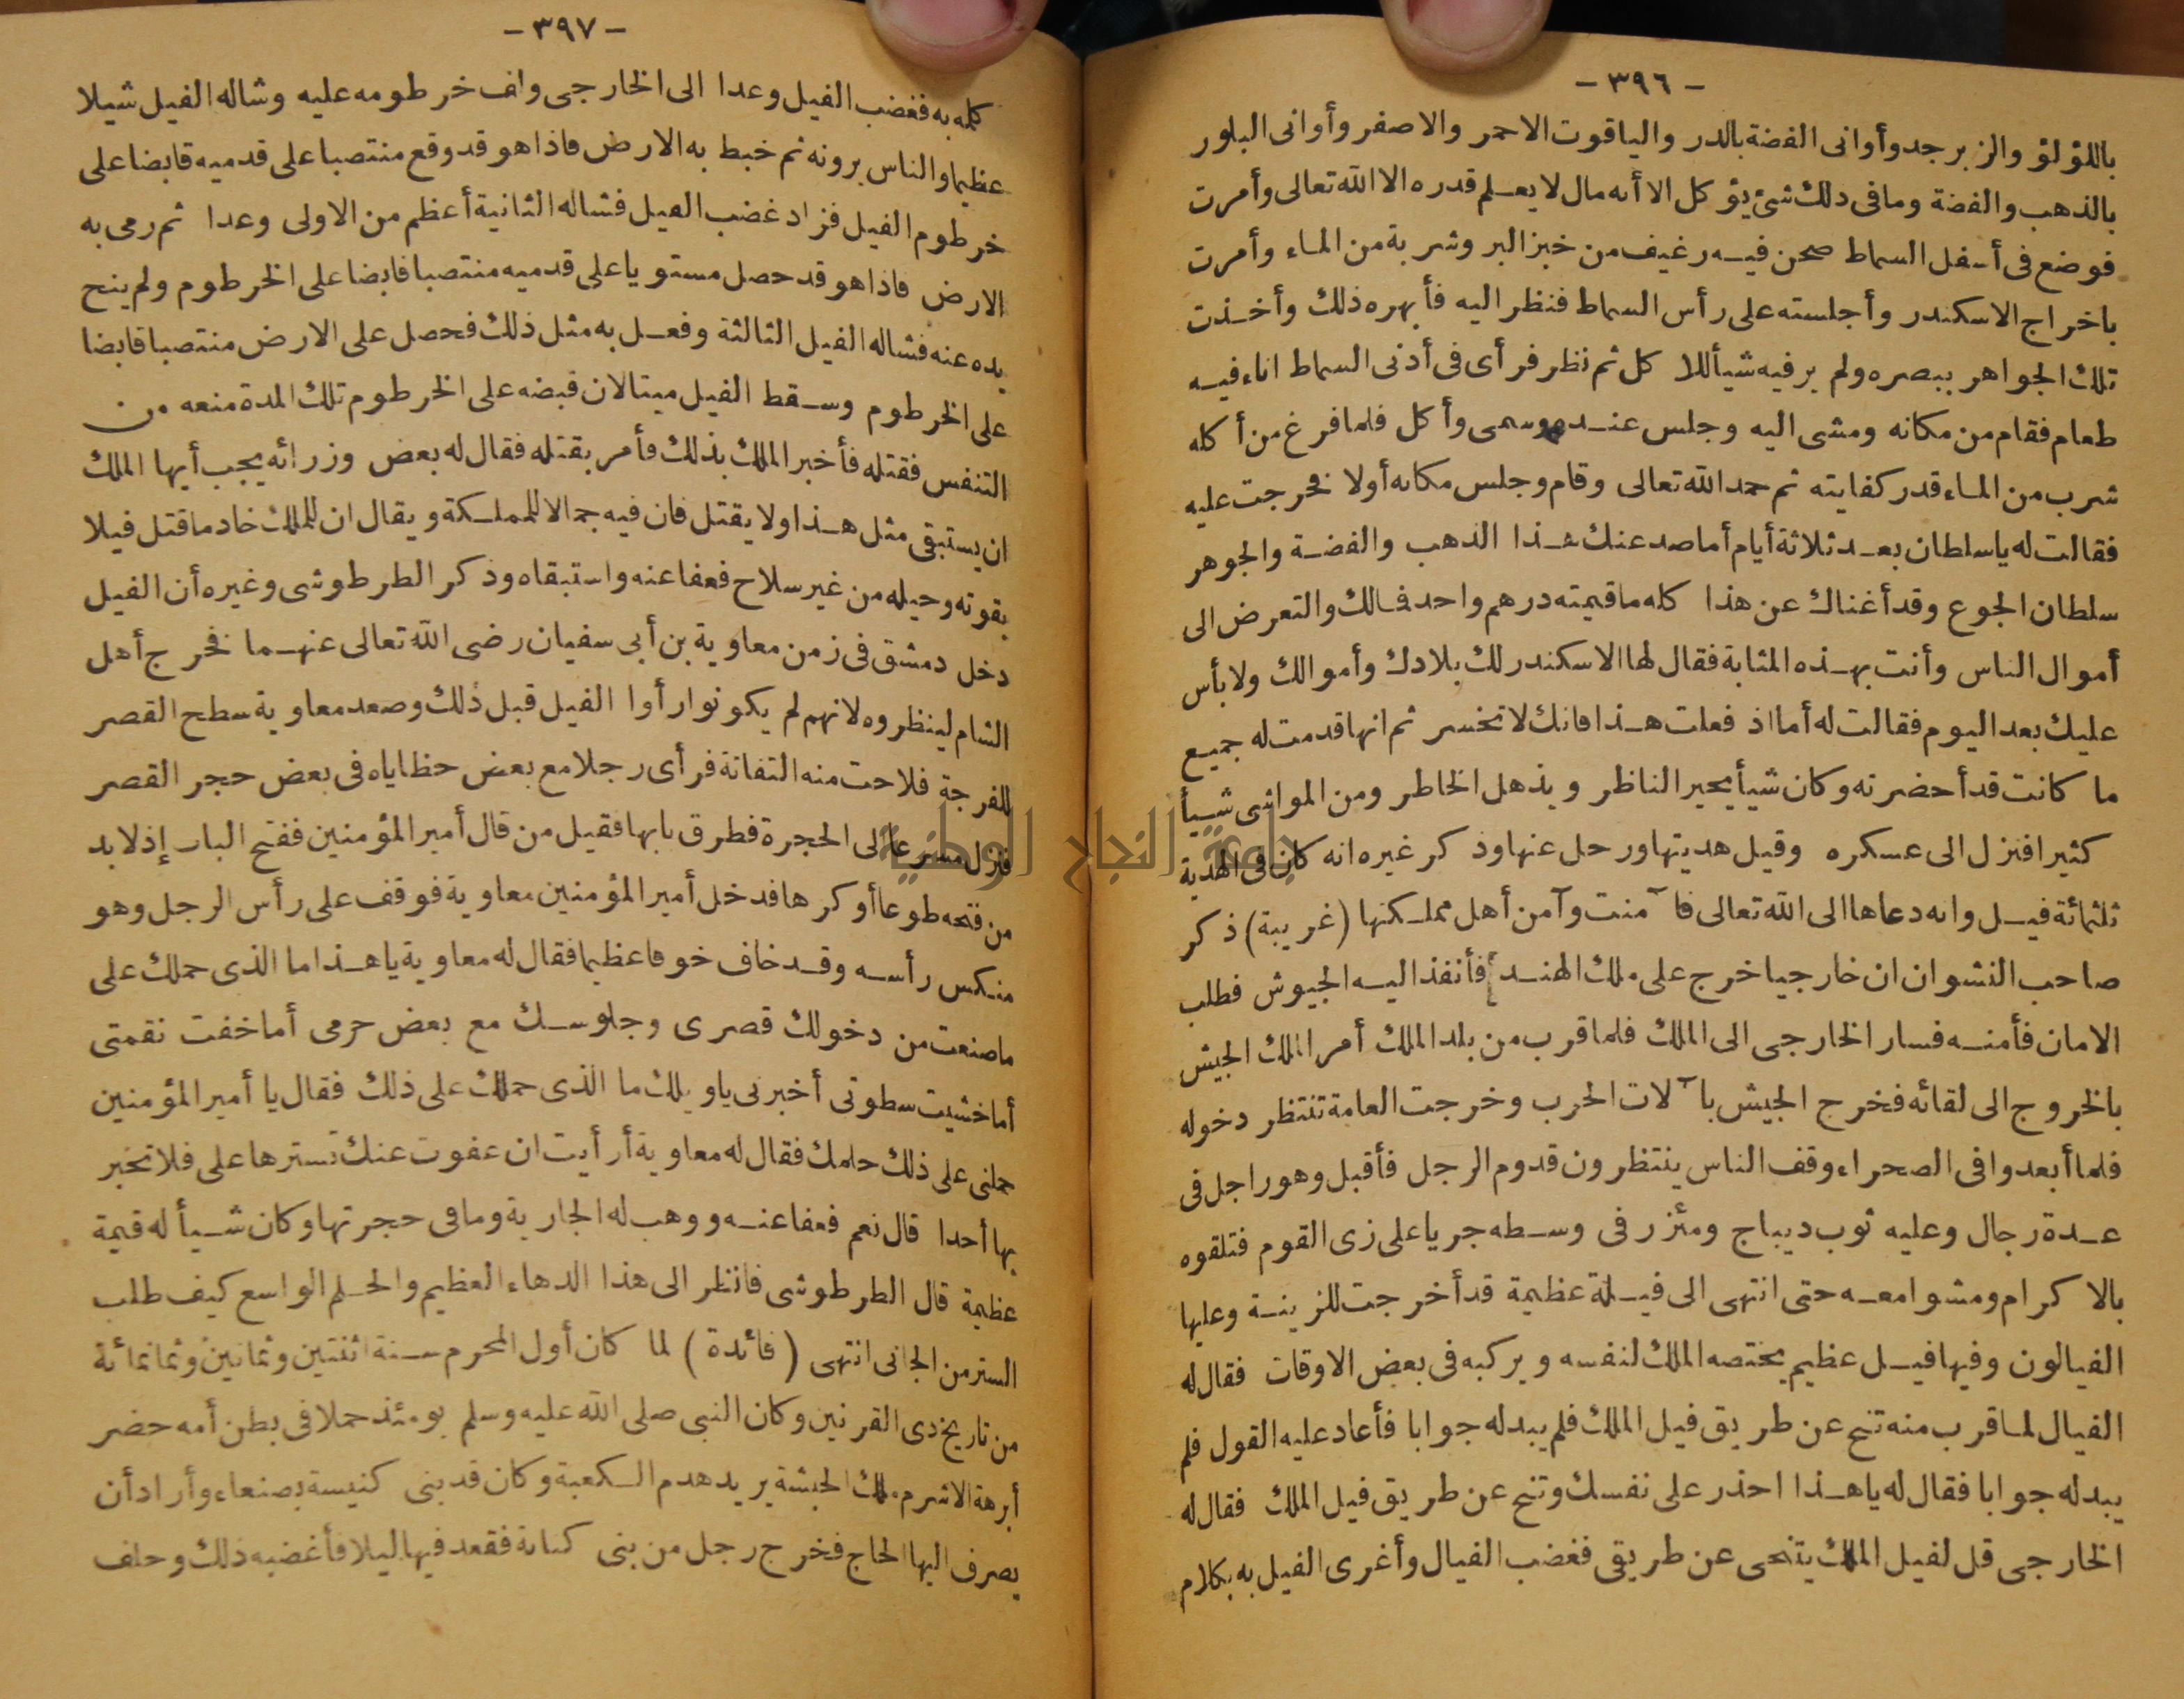 - ٣٩٦ -
باللؤلؤ والزبرجد وأوانى الفضة بالدر والياقوت الاحمر والاصفر وأوانى البلور
بالذهب والفضة وما فى ذلك شئ يؤكل الا أنه مال لا يعلم قدره الا الله تعالى وأمرت
فوضع فى أسفل السماط صحن فيه رغيف من خبز البر وشربة من الماء وأمرت
باخراج الاسكندر وأجلسته على رأس السماط فنظر اليه فأبهره ذلك وأخذت
تلك الجواهر ببصره ولم ير فيه شيأ للاكل ثم نظر فرأى فى أدنى السماط اناء فيه
طعام فقام من مكانه ومشى اليه وجلس عنده وسمى وأكل فلما فرغ من أكله
شرب من الماء قدر كفايته ثم حمد الله تعالى وقام وجلس مكانه أولا فخرجت عليه
فقالت له يا سلطان بعد ثلاثة أيام أما صد عنك هذا الذهب والفضة والجوهر
سلطان الجوع وقد أغناك عن هذا كله ما قيمته درهم واحد فمالك والتعرض الى
أموال الناس وأنت بهذه المثابة فقال لها الاسكندر لك بلادك وأموالك ولا بأس
عليك بعد اليوم فقالت له أما اذ فعلت هذا فانك لا تخسر ثم انها قدمت له جميع
ما كانت قد أحضرته وكان شيأ يحير الناظر ويذهل الخاطر ومن المواشى شيأ
كثيرا فنزل الى عسكره وقبل هديتها ورحل عنها وذكر غيره انه كان فى الهدية
ثلثمائة فيل وانه دعاها الى الله تعالى فآمنت وآمن أهل مملكتها (غريبة) ذكر
صاحب النشوان ان خارجيا خرج على ملك الهند فأنفذ اليه الجيوش فطلب
الامان فأمنه فسار الخارجى الى الملك فلما قرب من بلد الملك أمر الملك الجيش
بالخروج الى لقائه فخرج الجيش بآلات الحرب وخرجت العامة تنتظر دخوله
فلما أبعدوا فى الصحراء وقف الناس ينتظرون قدوم الرجل فأقبل وهو راجل فى
عدة رجال وعليه ثوب ديباج ومئزر فى وسطه جريا على زى القوم فتلقوه
بالاكرام ومشوا معه حتى انتهى الى فيلة عظيمة قد أخرجت للزينة وعليها
الفيالون وفيها فيل عظيم يختصه الملك لنفسه ويركبه فى بعض الاوقات فقال له
الفيال لما قرب منه تنح عن طريق فيل الملك فلم يبد له جوابا فأعاد عليه القول فلم
يبد له جوابا فقال له يا هذا احذر على نفسك وتنح عن طريق فيل الملك فقال له
الخارجى قل لفيل الملك يتنحى عن طريقى فغضب الفيال وأغرى الفيل به بكلام
- ٣٩٧ -
كلمه به فغضب الفيل وعدا الى الخارجى ولف خرطومه عليه وشاله الفيل شيلا
عظيما والناس يرونه ثم خبط به الارض فاذا هو قد وقع منتصبا على قدميه قابضا على
خرطوم الفيل فزاد غضب الفيل فشاله الثانية أعظم من الاولى وعدا ثم رمى به
الارض فاذا هو قد حصل مستويا على قدميه منتصبا قابضا على الخرطوم ولم ينح
يده عنه فشاله الفيل الثالثة وفعل به مثل ذلك فحصل على الارض منتصبا قابضا
على الخرطوم وسقط الفيل ميتا لان قبضه على الخرطوم تلك المدة منعه من
التنفس فقتله فأخبر الملك بذلك فأمر بقتله فقال له بعض وزرائه يجب أيها الملك
ان يستبقى مثل هذا ولا يقتل فان فيه جمالا للمملكة ويقال ان للملك خادما قتل فيلا
بقوته وحيله من غير سلاح فعفا عنه واستبقاه وذكر الطرطوشى وغيره أن الفيل
دخل دمشق فى زمن معاوية بن أبى سفيان رضى الله تعالى عنهما فخرج أهل
الشام لينظروه لانهم لم يكونوا رأوا الفيل قبل ذلك وصعد معاوية سطح القصر
للفرجة فلاحت منه التفاتة فرأى رجلا مع بعض حظاياه فى بعض حجر القصر
فنزل مسرعا الى الحجرة فطرق بابها فقيل من قال أمير المؤمنين ففتح الباب إذ لا بد
من فتحه طوعا أو كرها فدخل أمير المؤمنين معاوية فوقف على رأس الرجل وهو
منكس رأسه وقد خاف خوفا عظيما فقال له معاوية يا هذا ما الذى حملك على
ما صنعت من دخولك قصرى وجلوسك مع بعض حرمى أما خفت نقمتى
أما خشيت سطوتى أخبرنى يا ويلك ما الذى حملك على ذلك فقال يا أمير المؤمنين
حملنى على ذلك حلمك فقال له معاوية أرأيت ان عفوت عنك تسترها على فلا تخبر
بها أحدا قال نعم فعفا عنه ووهب له الجارية وما فى حجرتها وكان شيأ له قيمة
عظيمة قال الطرطوشى فانظر الى هذا الدهاء العظيم والحلم الواسع كيف طلب
الستر من الجانى انتهى (فائدة) لما كان أول المحرم سنة اثنتين وثمانين وثمانمائة
من تاريخ ذى القرنين وكان النبى صلى الله عليه وسلم يومئذ حملا فى بطن أمه حضر
أبرهة الاشرم ملك الحبشة يريد هدم الكعبة وكان قد بنى كنيسة بصنعاء وأراد أن
يصرف اليها الحاج فخرج رجل من بنى كنانة فقعد فيها ليلا فأغضبه ذلك وحلف
جامعة النجاح الوطنية